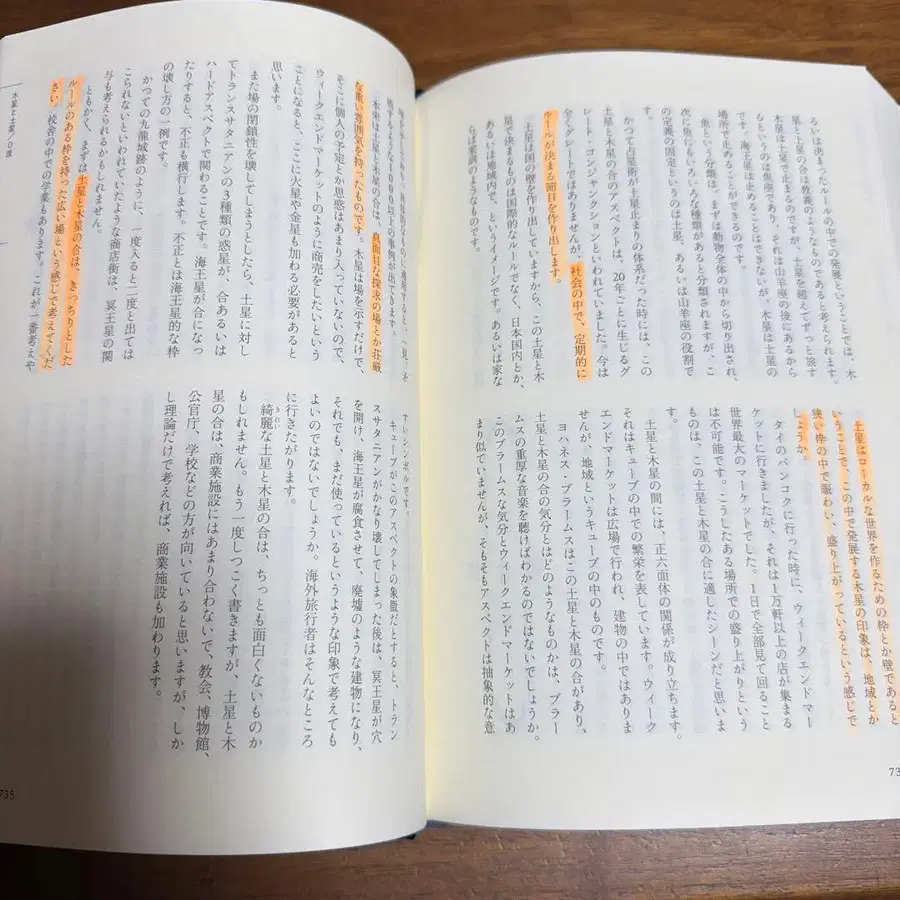 るいは決まったルールの中での発展ということでは、木
星と土星の合は教義のようなものであると考えられます。
木星は土星で止まるのですが、土星を越えてずっと旅す
るというのは魚座であり、それは山羊座の後にあるから
です。海王星は止めることはできないが、木星は土星の
場所で止めることができるのです。
魚という分類は、まず動物全体の中から切り出され、
次に魚にもいろいろな種類があると分類されますが、こ
の定義の固定というのは土星、あるいは山羊座の役割で
す。
かつて占星術が土星止まりの体系だった時には、この
土星と木星の合のアスペクトは、20年ごとに生じるグ
レート・コンジャンクションといわれていました。今は
全くグレートではありませんが、社会の中で、定期的に
ルールが決まる節目を作り出します。
土星は国の礎を作り出していますから、この土星と木
星で決まるものは国際的なルールでなく、日本国内とか、
あるいは域内で、というイメージです。あるいは家な
ら家訓のようなものです。
土星はローカルな世界を作るための枠とか壁であると
いうことで、この中で発展する木星の印象は、地域とか
狭い枠の中で賑わい、盛り上がっているという感じで
しょうか。
タイのバンコクに行った時に、ウィークエンドマー
ケットに行きましたが、それは1万軒以上の店が集まる
世界最大のマーケットでした。1日で全部見て回ること
は不可能です。こうしたある場所での盛り上がりという
ものは、この土星と木星の合に適したシーンだと思いま
す。
土星と木星の間には、正六面体の関係が成り立ちます。
それはキューブの中での繁栄を表しています。ウィーク
エンドマーケットは広場で行われ、建物の中ではありま
せんが、地域というキューブの中のものです。
ヨハネス・ブラームスはこの土星と木星の合があり、
土星と木星の合の気分とはどのようなものかは、ブラー
ムスの重厚な音楽を聴けばわかるのではないでしょうか。
このブラームスな気分とウィークエンドマーケットはあ
まり似ていませんが、そもそもアスペクトは抽象的な意
1000以上の事例が出てきます。
本来は土星と木星の合は、真面目な探求の場とか荘厳
な重い雰囲気を持ったものです。木星は場を示すだけで、
そこに個人の予定とか思惑はあまり入っていないので、
ウィークエンドマーケットのように商売をしたいという
ことになると、ここに火星や金星も加わる必要があると
思います。
また場の閉鎖性を壊してしまうとしたら、土星に対し
てトランスサタニアンの3種類の惑星が、合あるいは
ハードアスペクトで関わることです。海王星が合になっ
たりすると、不正も横行します。不正とは海王星的な枠
の壊し方の一例です。
かつての九龍城跡のように、一度入ると二度と出ては
こられないといわれていたような商店街は、冥王星の関
与も考えられるかもしれません。
ともかく、まずは土星と木星の合は、きっちりとした
ルールのある枠を持った広い場という感じで考えてくだ
さい。校舎の中での学業もあります。これが一番考えや
すいシンボルです。
キューブがこのアスペクトの象徴だとすると、トラン
スサタニアンがかなり壊してしまった後は、冥王星が穴
を開け、海王星が腐食させて、廃墟のような建物になり、
それでも、まだ使っているというような印象で考えても
よいのではないでしょうか。海外旅行者はそんなところ
に行きたがります。
綺麗な土星と木星の合は、ちっとも面白くないものか
もしれません。もう一度しつこく書きますが、土星と木
星の合は、商業施設にはあまり合わないで、教会、博物館、
公官庁、学校などの方が向いていると思いますが、しか
し理論だけで考えれば、商業施設も加わります。
木星と土星/0度
735